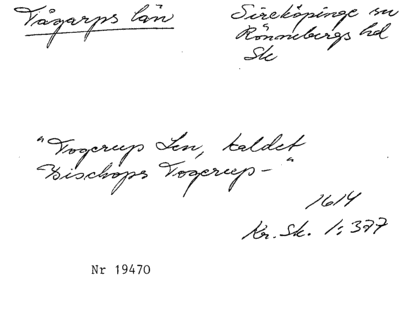 Tågarps län
Sireköpinge sn
Rönnebergs hd
Sk
"Togerup Len, kaldet
Bischops Togerup-"
1614
Kr. Sk. 1:377
Nr 19470